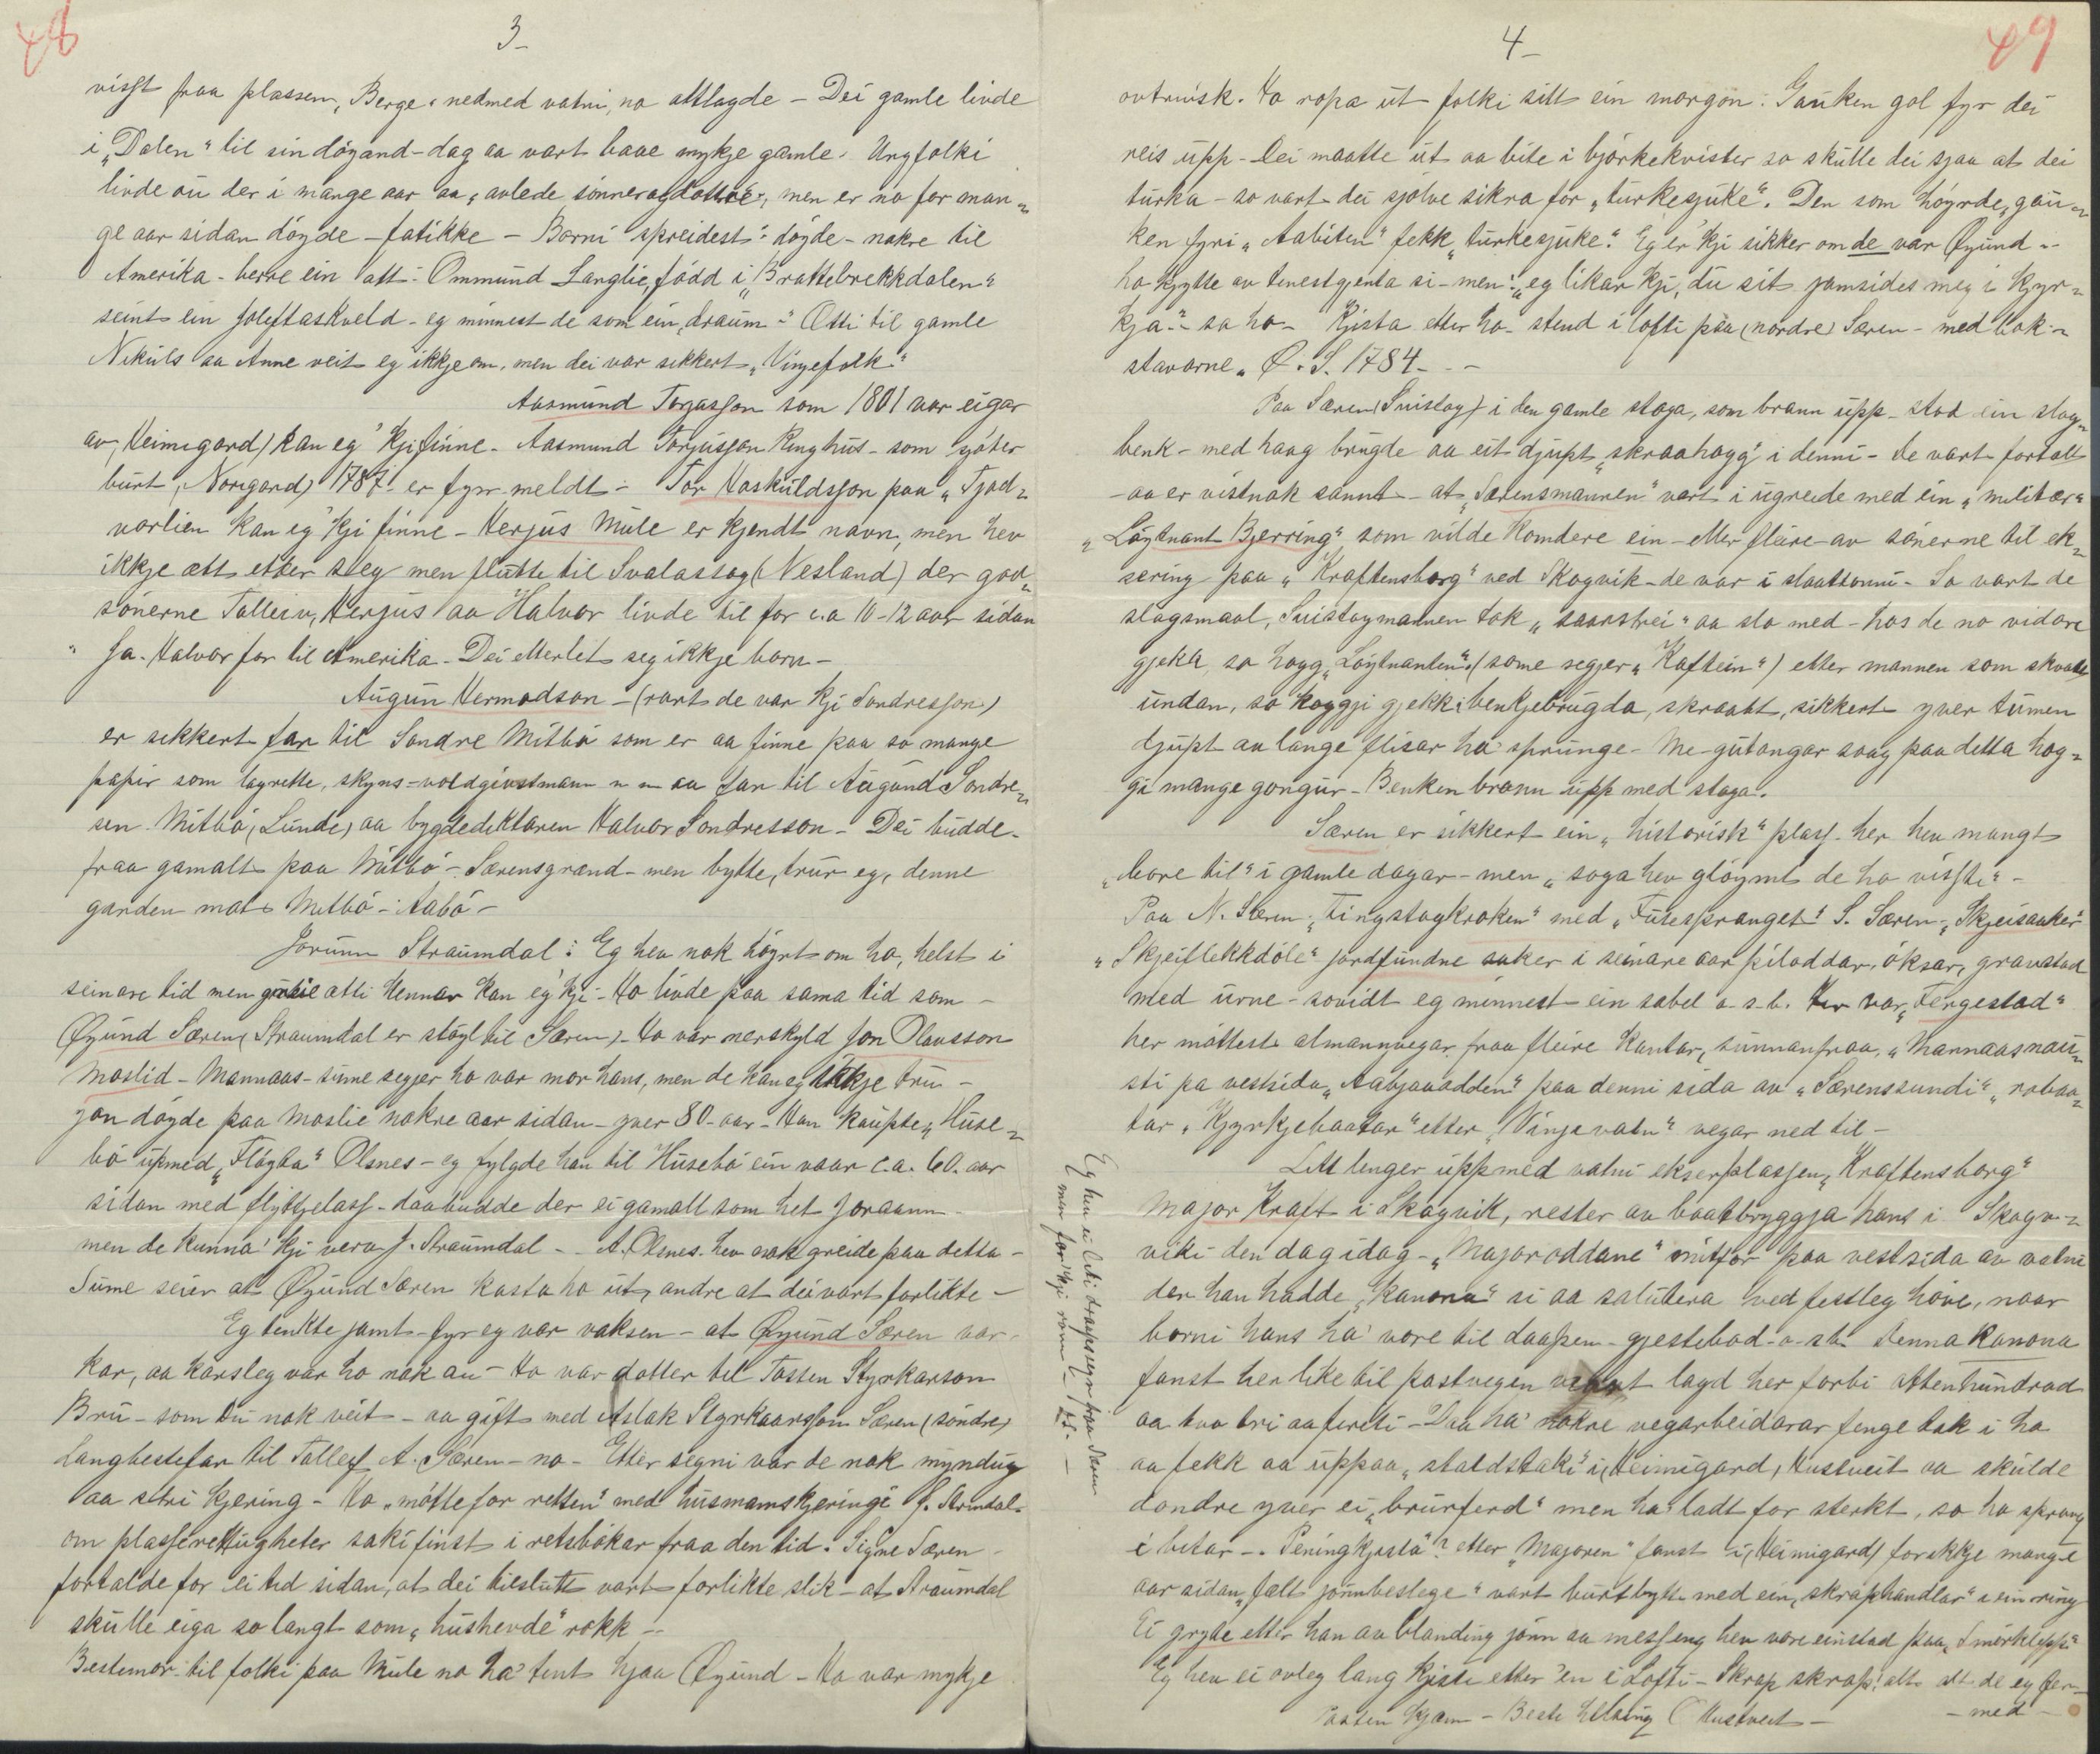 48
3-
visst fraa plassen, Berge" nedmed vatni, no attlagde - Dei gamle livde
i "Dalen" til sin döyand-dag aa vart baae mykje gamle. Ungfolki
livde ou der i mange aar aa "avlede sönner og döttre", men er no for man-
ge aar sidan döyde - fatikke - Borni "spreidest": döyde - nokre til
Amerika - berre ein att: Ommund Langlie, född i "Brattebrekkdalen"
seint ein joleftaskveld - eg minnest de som ein "draum" - Ætti til gamle
Nikuls aa Anne veit eg ikkje om, men dei var sikkert "Vinjefolk."
Aasmund Torjusson som 1801 var eigar
av, Heimigard) kan eg 'kji finne. Aasmund Torjusson Ringhus - som gjöter
burt, Norigard) 1787 - er fyrr meldt - Tor Hoskuldsson paa "Tjod-
vorlien kan eg 'kji finne - Herjus Mule er kjendt navn, men hev
ikkje ætt etter seg men flutte til Svalastog (Nesland) der god-
sönerne Tallein, Herjus aa Halvor livde til for c.a 10-12 aar sidan
" Ja. Halvor for til Amerika - Dei etterlet seg ikkje born -
Augun Hermodson - (rart de var kji Sondresson)
er sikkert far til Sondre Mitbö som er aa finne paa so mange
papir som lagrette, skyns-voldgivstmann m m aa far til Augund Sondre-
sen Mitbö, Lunde, aa bygdediktaren Halvor Sondresson - Dei budde -
fraa gamalt paa Mitbö - Særensgrænd - men bytte, trur eg, denne
garden mot Mitbö - Aabö -
Jorunn Straumdal: Eg hev nok höyrt om ho, helst i
seinare tid men greie ætti hennar kan eg 'kji - Ho livde paa sama tid som -
Öyund Særen, Straumdal er stöyl til Særen) - Ho var nerskyld Jon Olavsson
Moslid - Mannaas - sume segjer ho var mor hans, men de kan eg ikkje tru -
Jon döyde paa Moslie nokre aar sidan - yver 80-aar - Han kaupte "Huse-
bö" upmed "Flöyta" Ölsnes - eg fylgde han til Husebö ein vaar c.a. 60. aar
sidan med flytjelass - daa budde der ei gamall som het Joraann -
men de kunna 'kji vera J. Straumdal - - A. Ølsnes hev nok greide paa detta -
Sume seier at Öyund Særen kasta ho ut, andre at dei vart forlikte -
Eg tenkte jamt - fyr eg var vaksen - at Öyund Særen var -
kar, aa karsleg var ho nok au - Ho var dotter til Tosten Styrkarson
Bru - som Du nok veit - aa gift med Aslak Styrkaarsson Særen (söndre)
langbestefar til Tallef A. Særen - no - Etter segni var de nok myndug
aa stri kjering - Ho "mötte for retten" med husmannskjeringi J. Strmdal -
om plasserettugheter saki finst i retsbökar fraa den tid. Signe Særen -
fortalde for ei tid sidan, at dei tilslutt vart forlikte slik - at Straumdal
skulle eiga so langt som "hushevde" rokk -
Bestemor til folki paa Mule no ha' tent hjaa Öyund - Ho var mykje
49
4-
ovtruisk. Ho ropa ut folki sitt ein morgon: Gauken gol fyr dei
reis upp - Dei maatte ut aa bite i björkekvister so skulle dei sjaa at dei
turka - so vart dei sjölve sikra for "turkesjuke". Den som höyrde, gau-
ken fyri "Aabiten" fekk "turkesjuke." Eg er 'kji sikker om de var Öyund --
ho kjytte av tenestgjenta si - men: "eg likar kji, du sit jamsides meg i kjyr-
kja" - sa ho - Kjista etter ho - stend i lofti paa (nordre) Særen - med bok-
stavarne "Ø. S. 1784 - - -
Paa Særen (Suistog) i den gamle stoga, som brann upp - stod ein stog-
benk - med haag brugde aa eit djupt "skraahogg" i denni - de vart fortalt
- aa er vistnok sannt - at "Særensmannen" vart i ugreide med ein "militær"
"Löytnant Bjerring" som vilde komdere ein - eller fleire - av sönerne til ek-
sering paa "Kraftensborg" ved Skogvik - de var i slaattonni - So vart de
slagsmaal, Suistogmannen tok "saarstrei" aa slo med - hos de no vidare
gjekk, so hogg "Löytnanten" (some segjer "Kaftein") etter mannen som skvatt
undan, so hoggji gjekk i benkjebrugda, skraatt, sikkert yver tumen
djupt aa lange flisar ha sprunge - Me gutongar saag paa detta hog-
gji mange gongur - Benken brann upp med stoga.
Særen er sikkert ein "historisk" plass - her hev mangt
"bore til" i gamle dagar - men "soga hev glöymt de ho visste" -
Paa N. Særen "Tingstogkroken" med "Futespranget" S. Særen - "Skjeisaaker"
"Skjeiflekkdöle" jordfundne saker i seinare aar piladdar, öksar, gravstad
med urne - sovidt eg minnest - ein sabel o. s. b. Her var "Fergestad"
her möttest almannvegar fraa fleire kantar, sunnanfraa, "Mannaasnau-
sti pa vestsida "Aabjauodden" paa denni sida av "Særenssundi", robaa-
tar, "Kjyrkjebaatar" etter "Vinjevatn" vegar ned til -
Litt lenger uppmed vatni ekserplassen, "Kraftensborg"
Major Kraft i Skogvik, rester av baatbryggja hans i Skogv-
viki den dag idag - "Majoroddane" mitfor paa vestsida av vatni
der han hadde "kanona" si aa salutera ved festleg höve, naar
borni hans ha vore til daapen - gjestebod - o. s. b. Denna kanona
fanst her like til postvegen vart lagd her forbi attenhundrad
aa tvo tri aa fireti - Daa ha nokre vegarbeidarar fenge tak i ho
aa fekk aa uppaa "staldstaki" i, Heimigard, Hustveit aa skulde
dondre yver ei "brurferd" men ha ladt for sterkt, so ho sprang
i bitar -. Peningkjista? etter "Majoren" fanst i, Heimigard) for ikkje mange
aar sidan, "fælt jönnbeslege" vart burtbytt med ein "skraphandlar" i ein ring
Ei gryte etter han av blanding jönn aa messeng hev vore einstad paa, Smörklepp"
Eg hev ei ovleg lang kjiste etter 'en i Lofti - Skrap skrap! alt alt de eg fer -
- med -
Posten kjem - Beste helsing O Hustveit -
Eg hev ei liti drapssegn fraa Særen
men fær 'kji rom -